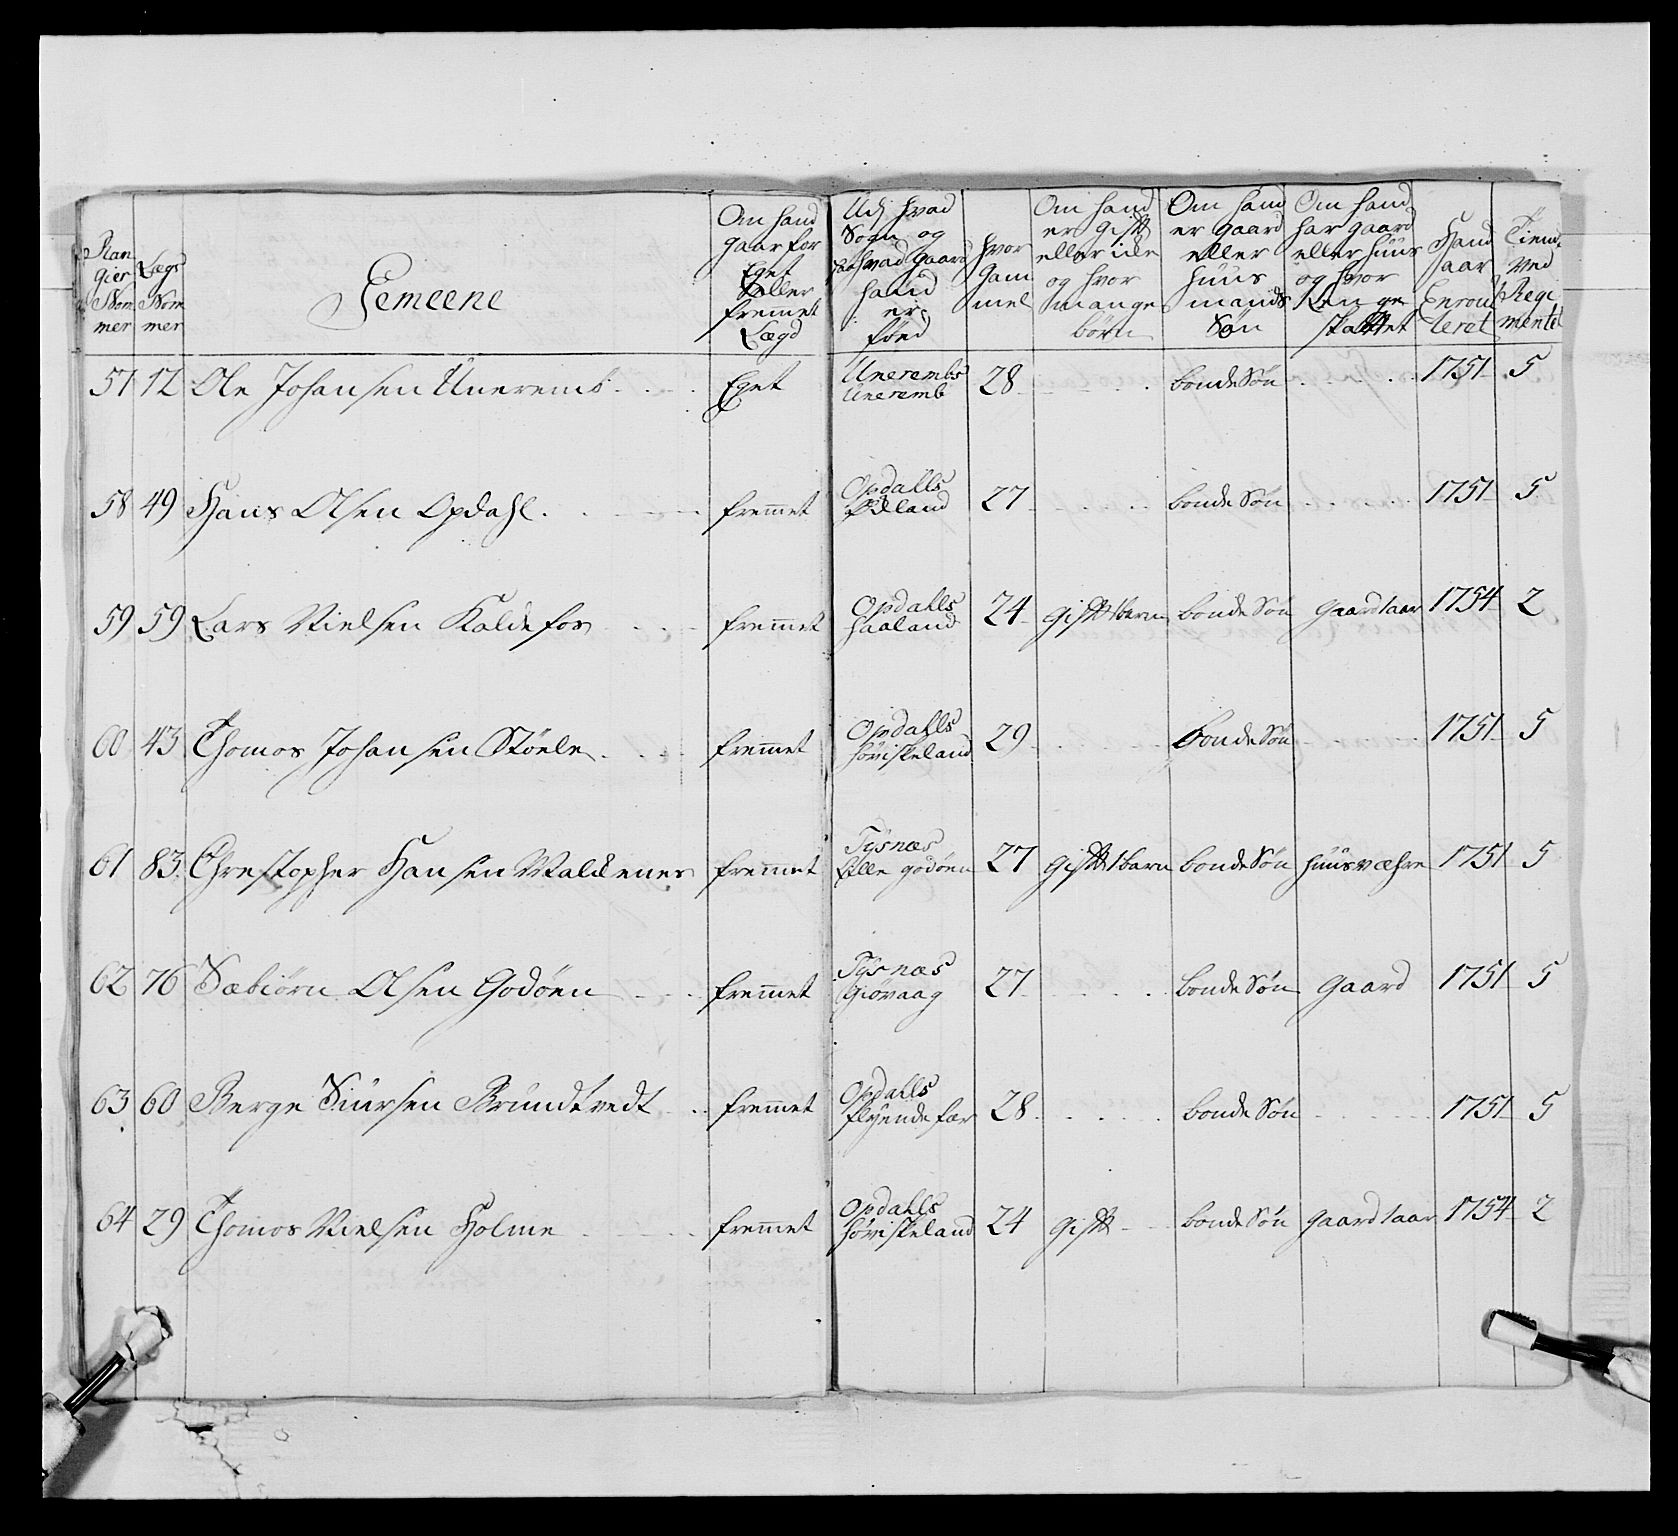 Ran
gier
Nom
mer
Lægs
Nom
mer
Gemeene
Om hand
gaar for
Eget
eller
fremet
Lægd
Udj hvad
Sogn og
paa hvad Gaard
hand
er
föed
hvor
Gam
mel
Om hand
er Gift
eller icke
og hvor
mange
börn
Om hand
er gaard
eller
huus
mands
Søn
Om hand
har gaard
eller huus
og hvor
Lenge
skattet
Hand
aar
Enroul
leret
Tient
Ved
Regi
mentet
57 12 Ole Johansen Uneremb Eget Unerembs Uneremb 28 bonde Søn 1751 5
58 49 Hans Olsen Opdahl fremmet Opdalls Ødland 27 bonde Søn 1751 5
59 59 Lars Nielsen Kaldefos fremmet Opdalls Haaland 24 Gift 1 barn bonde Søn Gaard 1 aar 1754 2
60 43 Thomos Johansen Stöele fremmet Opdalls höviskeland 29 bonde Søn 1751 5
61 83 Chrestopher Hansen Waldenes fremmet Tÿsnæs Ille godöen 27 Gift 1 barn bonde Søn huusværre 1751 5
62 76 Sæbiörn Olsen Godöen fremmet Tÿsnæs Giövaag 27 bonde Søn Gaard 1751 5
63 60 Berge Siursen Brundtvedt fremmet Opdalls flÿende fær 28 bonde Søn 1751 5
64 29 Thomos Nielsen Holme fremmet Opdalls höviskeland 24 Gift bonde Søn Gaard 1 aar 1754 2